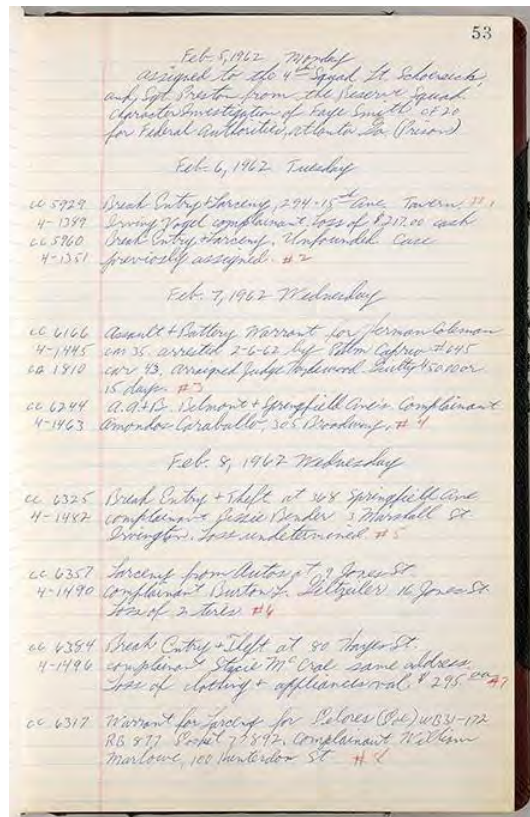 53
Feb. 5, 1962 Monday
assigned to the 4th Squad Lt.
and Sgt Preston from the Reserve Squad.
Character Investigation of Faye Smith CF20
for Federal Authorities, Atlanta Ga (Prison)
Feb. 6, 1962 Tuesday
cc 5929 Break Entry + Larceny, 294-15th Ave Tavern, #1
4-1349 Irving Vogel complainant Loss of $217.00 cash
cc 5960 Break Entry + Larceny. Unfounded Case
4-1351 previously assigned. #2
Feb. 7, 1962 Wednesday
cc 6166 Assault + Battery Warrant for Herman Coleman
4-1445 cm 35. arrested 2-6-62 by Patm Caprio #645
CB 1810 car 43. Arraigned Judge Guilty $50.00 or
15 days. #3
cc 6244 A.A.+B. Belmont + Springfield Ave's Complainant
4-1463 Amondos Caraballo, 305 Broadway, #4
Feb. 8, 1962 Wednesday
cc 6325 Break Entry + Theft at 368 Springfield Ave
4-1482 complainant Jessie Bender 3 Marshall St.
Irvington. Loss undetermined. #5
cc 6357 Larceny from Auto at 9 Jones St.
4-1490 complainant Burton L. 16 Jones St.
Loss of 2 tires #6
cc 6384 Break Entry + Theft at 80 Hayes St.
4-1496 complainant McCral same address.
Loss of clothing + appliances val. $295.00 #7
cc 6317 Warrant for Larceny for Delores WB31-172
RB 877 77892. Complainant William
Marlowe, 100 Hunterdon St #8